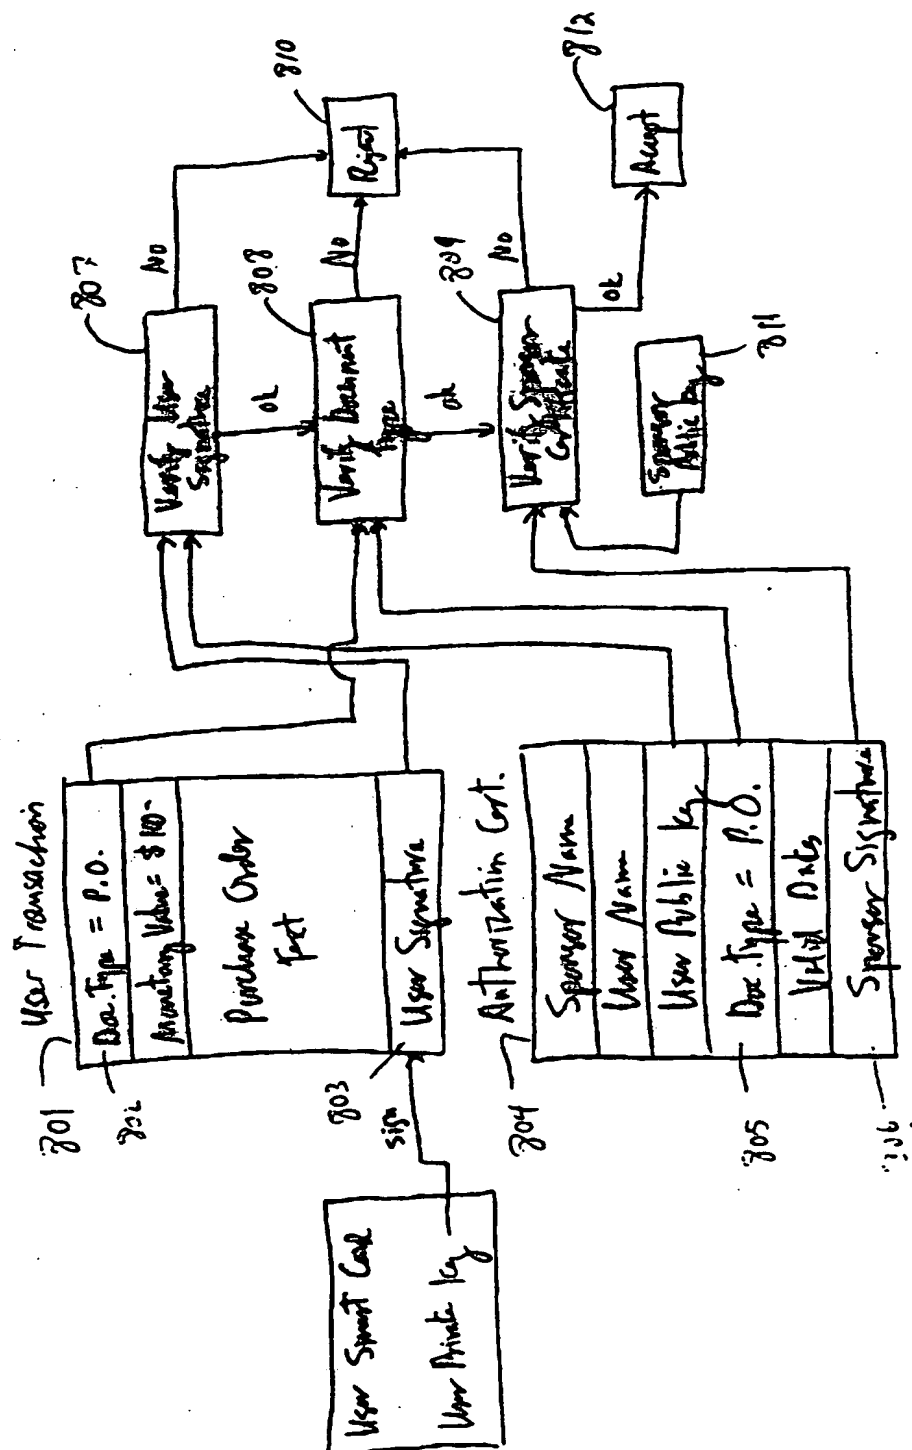 User Smart Card
User Private Key
sign
801
User Transaction
802
Doc. Type = P.O.
Monetary Value = $100-
Purchase Order
Text
803
User Signature
804
Authorization Cert.
Sponsor Name
User Name
User Public Key
805
Doc. Type = P.O.
Valid Dates
Sponsor Signature
807
Verify User
Signature
No
ok
808
Verify Document
Type
No
ok
809
Verify Sponsor
Certificate
No
ok
811
Sponsor
Public Key
810
Reject
812
Accept